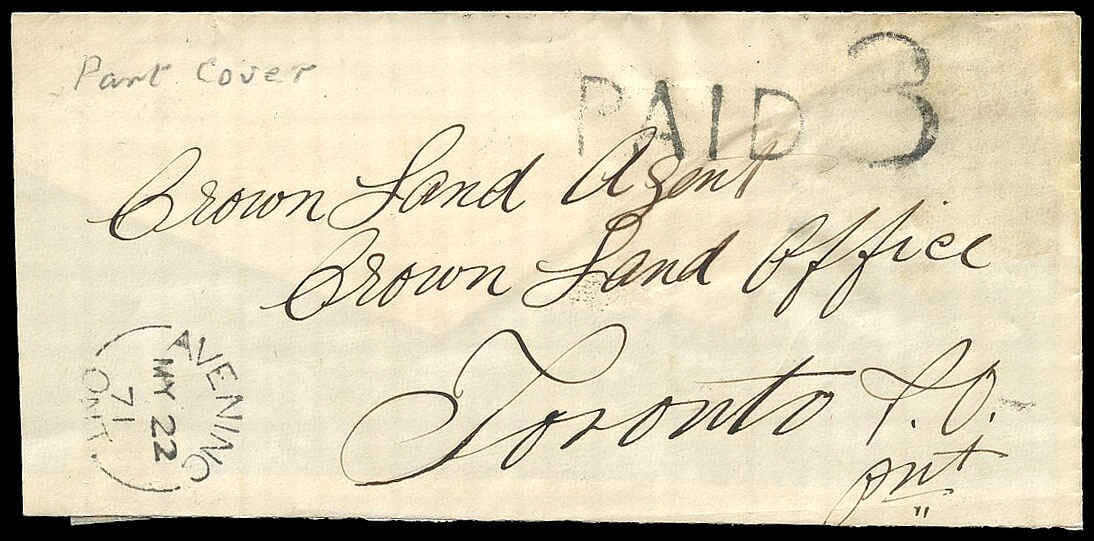 Part Cover
PAID 3
Crown Land Agent
Crown Land Office
Toronto P.O.
Ont
AVENING
MY 22
71
ONT.